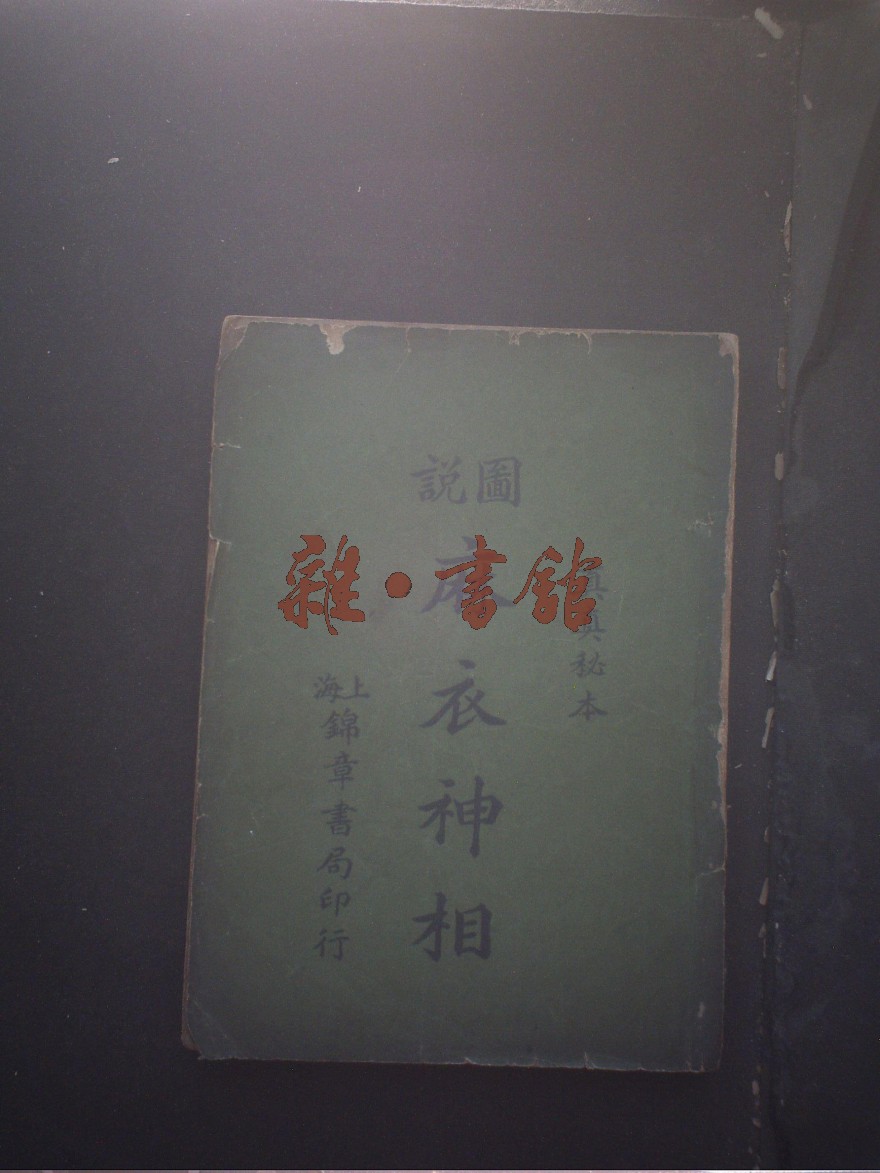 真真秘本
圖說
麻衣神相
上海
錦章書局印行
雜·書館